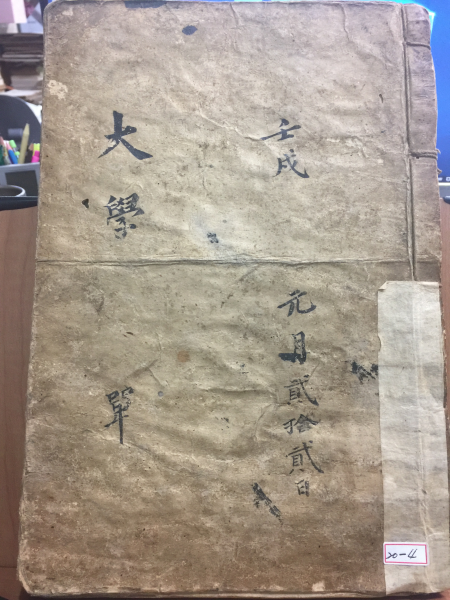 壬戌 元月貳拾貳日
大學 單
20-4